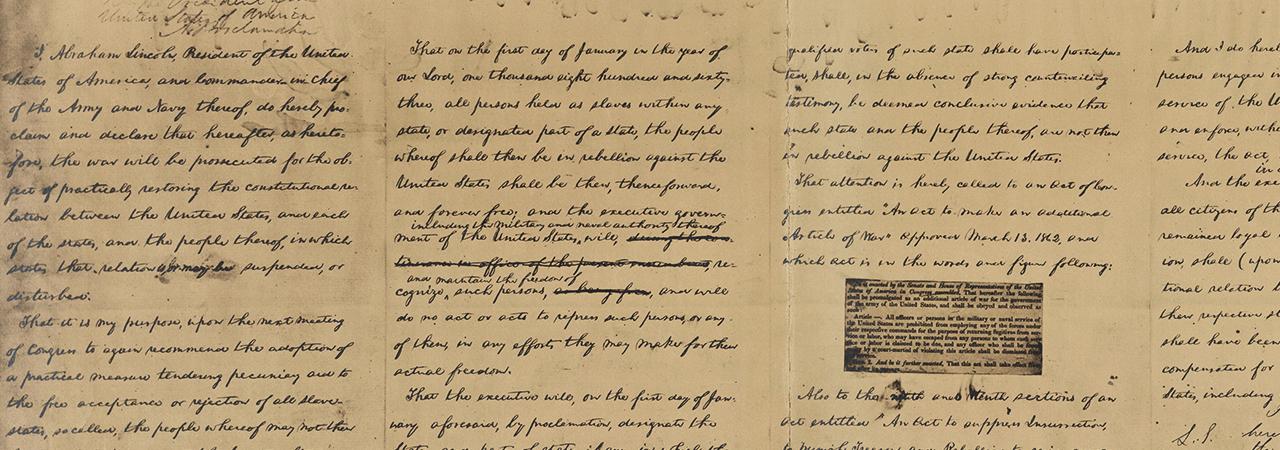 United States of America
A Proclamation
I, Abraham Lincoln, President of the United
States of America, and Commander-in-Chief
of the Army and Navy thereof, do hereby pro-
claim and declare that hereafter, as hereto-
fore, the war will be prosecuted for the ob-
ject of practically restoring the constitutional re-
lation between the United States, and each
of the states, and the people thereof, in which
states that relation is, or may be suspended, or
disturbed.
That it is my purpose, upon the next meeting
of Congress to again recommend the adoption of
a practical measure tendering pecuniary aid to
the free acceptance or rejection of all slave-
states, so called, the people whereof may not then
That on the first day of January in the year of
our Lord, one thousand eight hundred and sixty-
three, all persons held as slaves within any
state, or designated part of a state, the people
whereof shall then be in rebellion against the
United States shall be then, thenceforward,
and forever free; and the executive govern-
including the military and naval authority thereof
ment of the United States, will, during the con-
tinuance in office of the present incumbent, re-
and maintain the freedom of
cognize, such persons, as being free, and will
do no act or acts to repress such persons, or any
of them, in any efforts they may make for their
actual freedom.
That the executive will, on the first day of Jan-
uary aforesaid, by proclamation, designate the
qualified voters of such state shall have participa-
ted, shall, in the absence of strong countervailing
testimony, be deemed conclusive evidence that
such state and the people thereof, are not then
in rebellion against the United States.
That attention is hereby called to an act of Con-
gress entitled "An act to make an additional
Article of War" approved March 13, 1862, and
which act is in the words and figure following:
Be it enacted by the Senate and House of Representatives of the United
States of America in Congress assembled, That hereafter the following
shall be promulgated as an additional article of war for the government
of the army of the United States, and shall be obeyed and observed as
such:
Article —. All officers or persons in the military or naval service of
the United States are prohibited from employing any of the forces under
their respective commands for the purpose of returning fugitives from
or labor, who may have escaped from any persons to whom such
or labor is claimed to be due, and any officer who shall be found
by a court-martial of violating this article shall be dismissed from
Sec. 2. And be it further enacted, That this act shall take effect from
Also to the ninth and tenth sections of an
act entitled "An Act to suppress Insurrection,
And I do hereb
persons engaged in
service of the U
and enforce, with
service, the act,
And the exe
all citizens of th
remained loyal
ion, shall (upon
tional relation b
their respective st
shall have been
compensated for
States, including
L.S.